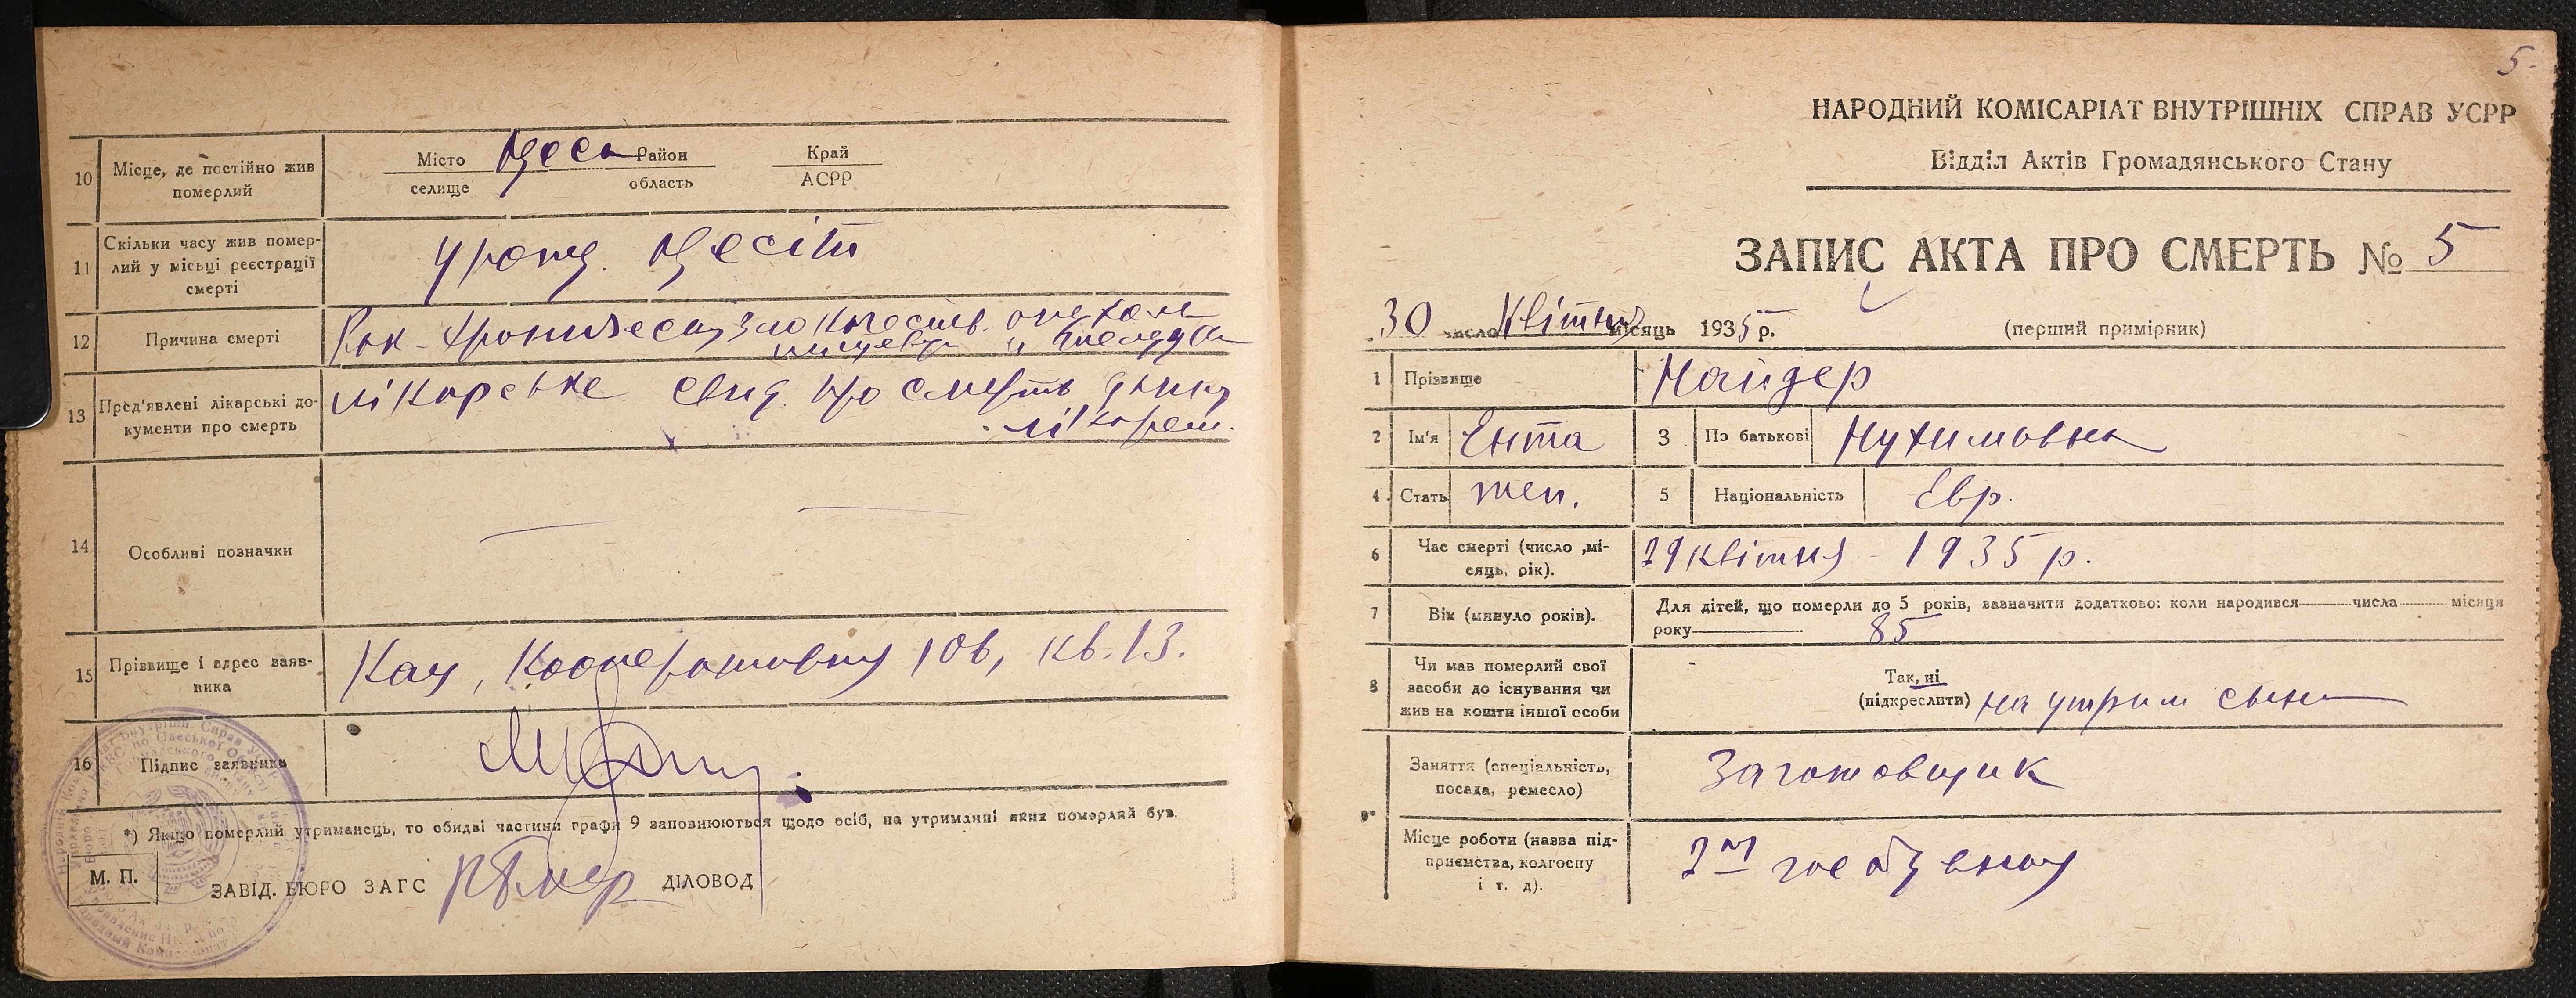 10
Місце, де постійно жив
померлий
Місто Одеса Район Край
селище область АСРР
11
Скільки часу жив помер-
лий у місьці реєстрації
смерті
урожд. Одеси
12
Причина смерті
Рак - хронический злокачеств. опухоль
пищевода и желудка
13
Пред'явлені лікарські до-
кументи про смерть
лікарське свид про смерть
лікарем.
14
Особливі позначки
15
Прізвище і адрес заяв-
ника
Кац, Кооперативну 106, кв. 13.
16
Підпис заявника
*) Якщо померлий утриманець, то обидві частини графи 9 заповнюються щодо осіб, на утриманні яких померлий був.
М. П.
ЗАВІД. БЮРО ЗАГС ДІЛОВОД
5
НАРОДНИЙ КОМІСАРІАТ ВНУТРІШНІХ СПРАВ УСРР
Відділ Актів Громадянського Стану
ЗАПИС АКТА ПРО СМЕРТЬ № 5
30 число Квітня місяць 1935 р. (перший примірник)
1 Прізвище Найдер
2 Ім'я Ента 3 По батькові Нухимовна
4. Стать жен. 5 Національність Евр.
6
Час смерті (число ,мі-
сяць, рік).
29 квітня - 1935 р.
7 Вік (минуло років).
Для дітей, що померли до 5 років, зазначити додатково: коли народився числа місяця
року 85
8
Чи мав померлий свої
засоби до існування чи
жив на кошти іншої особи
Так, ні
(підкреслити) на утрим сына
9*
Заняття (спеціальність,
посада, ремесло)
Заготовщик
Місце роботи (назва під-
приємства, колгоспу
і т. д).